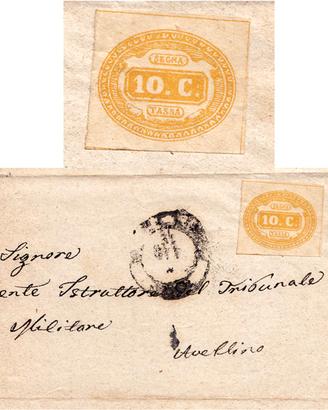 SEGNA
10. C.
TASSA
SEGNA
10. C.
TASSA
Signore
ente Istruttore del Tribunale
Militare
Avellino